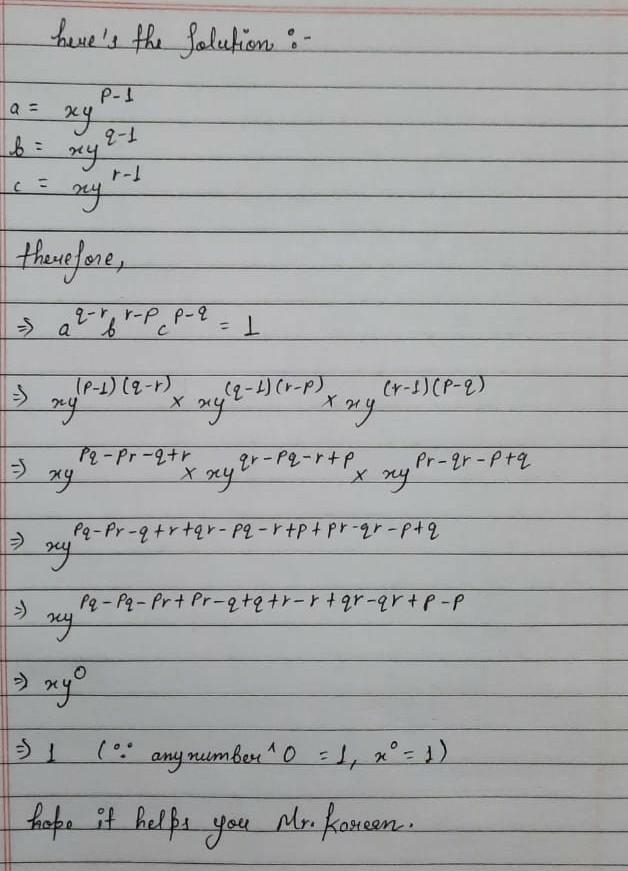 here's the solution :-
a = xy^{p-1}
b = xy^{q-1}
c = xy^{r-1}
therefore,
⇒ a^{q-r} b^{r-p} c^{p-q} = 1
⇒ xy^{(p-1)(q-r)} × xy^{(q-1)(r-p)} × xy^{(r-1)(p-q)}
⇒ xy^{pq-pr-q+r} × xy^{qr-pq-r+p} × xy^{pr-qr-p+q}
⇒ xy^{pq-pr-q+r+qr-pq-r+p+pr-qr-p+q}
⇒ xy^{pq-pq-pr+pr-q+q+r-r+qr-qr+p-p}
⇒ xy^0
⇒ 1 (∵ any number^0 = 1, x^0 = 1)
hope it helps you Mr. Koreen.